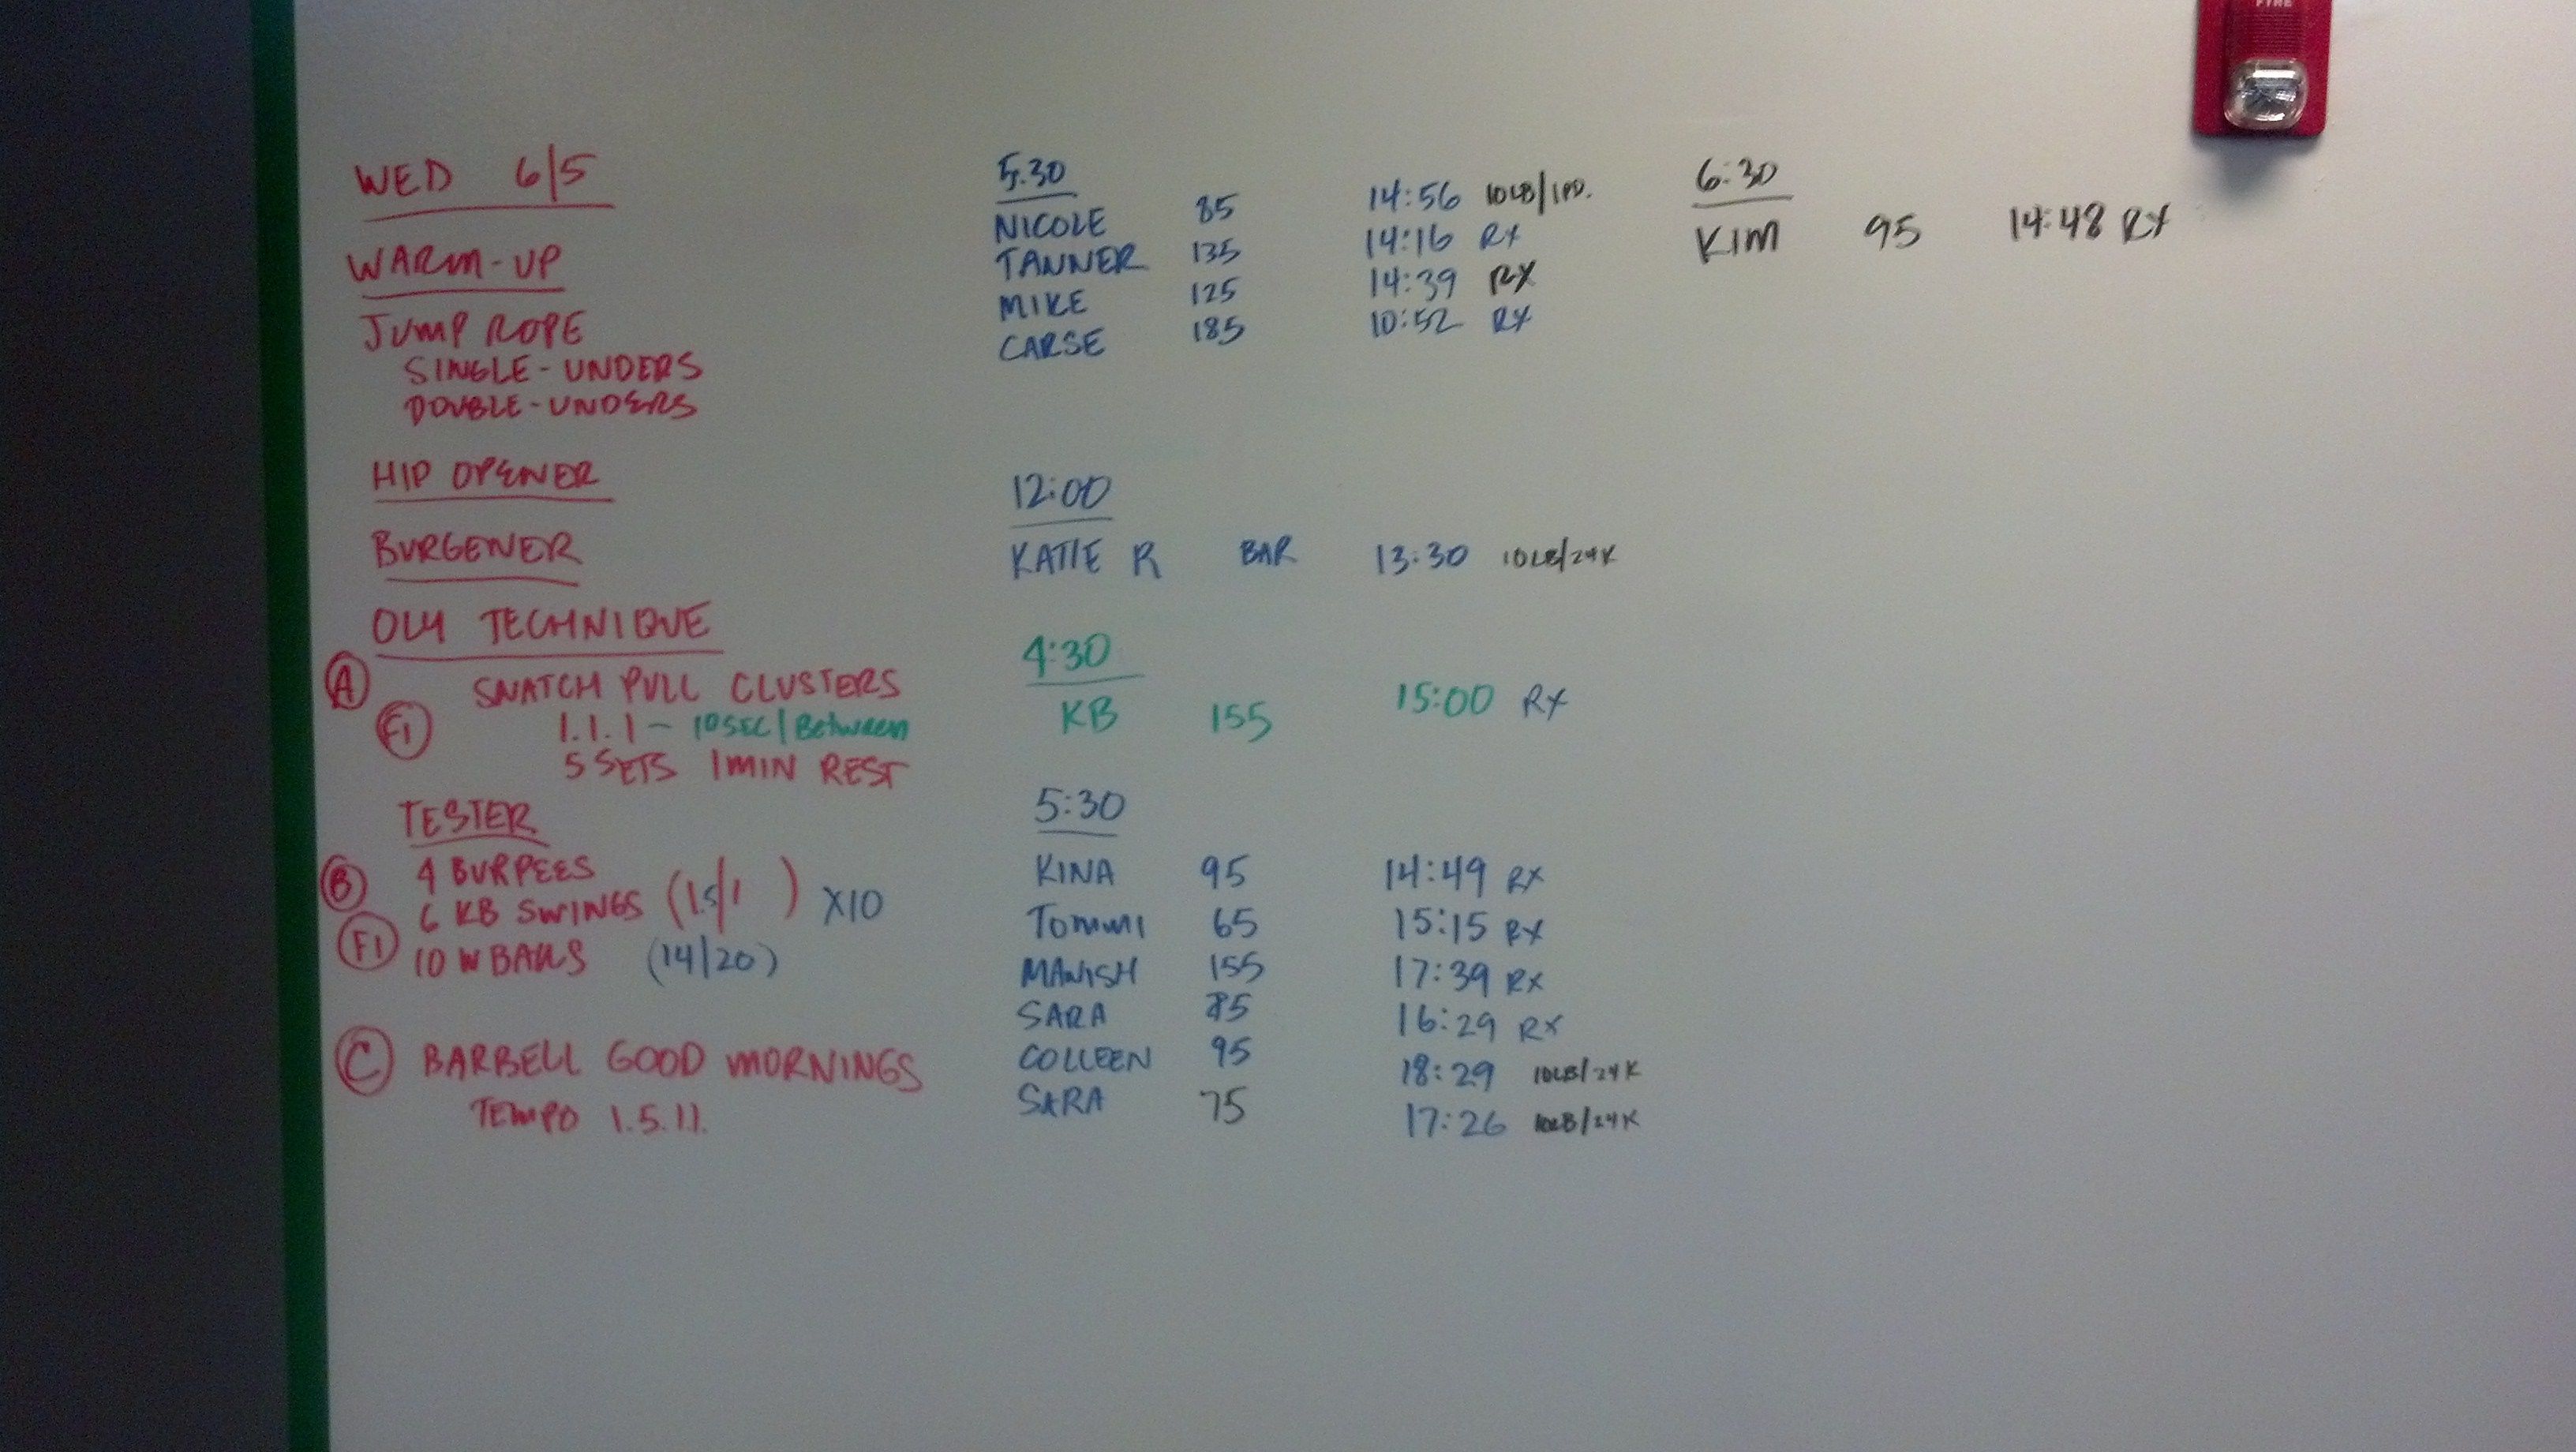 WED 6/5
WARM-UP
JUMP ROPE
SINGLE-UNDERS
DOUBLE-UNDERS
HIP OPENER
BURGENER
OLY TECHNIQUE
A SNATCH PULL CLUSTERS
F1 1.1.1 - 10SEC/BETWEEN
5 SETS 1MIN REST
TESTER
B 4 BURPEES
6 KB SWINGS (1.5/1 ) X10
F1 10 W BALLS (14/20)
C BARBELL GOOD MORNINGS
TEMPO 1.5.1.1.
5:30
NICOLE 85 14:56 10LB/1PD.
TANNER 135 14:16 RX
MIKE 125 14:39 RX
CARSE 185 10:52 RX
12:00
KATIE R BAR 13:30 10LB/24K
4:30
KB 155 15:00 RX
5:30
KINA 95 14:49 RX
TOMMI 65 15:15 RX
MANISH 155 17:39 RX
SARA 16:29 RX
COLLEEN 95 18:29 10LB/24K
SARA 75 17:26 10LB/24K
6:30
KIM 95 14:48 RX